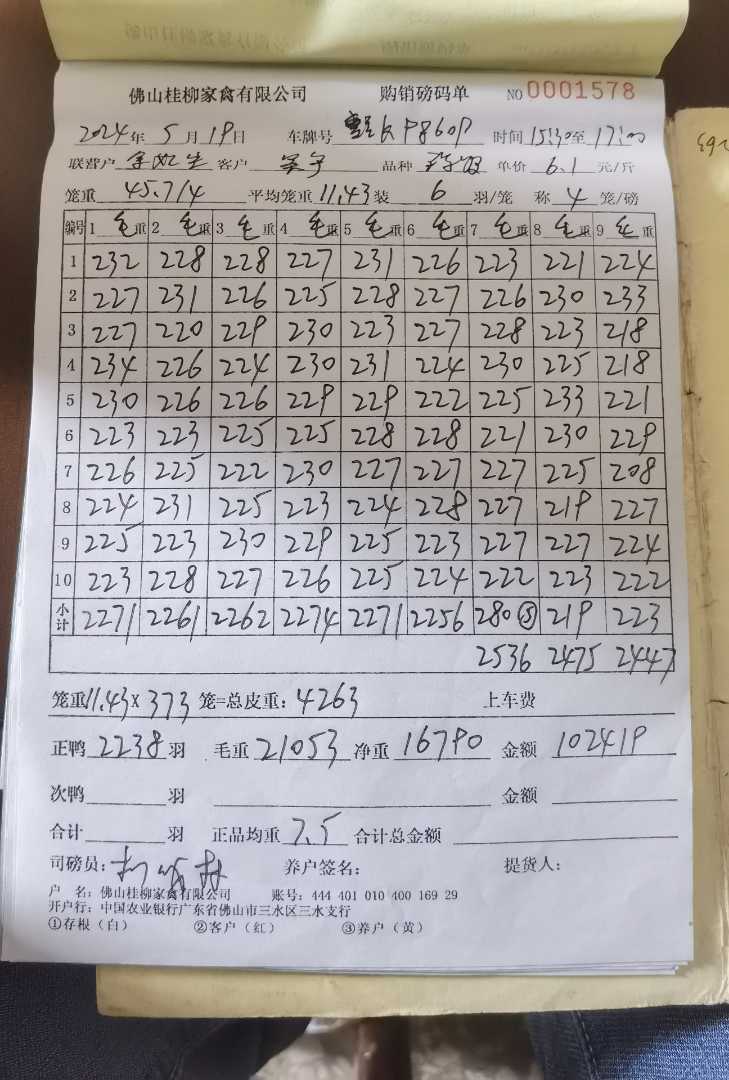 佛山桂柳家禽有限公司 购销磅码单 NO 0001578
2024年5月19日 车牌号 长P860P 时间 15:30至17:00
联营户 客户 品种 单价 6.1 元/斤
笼重 45.7/4 平均笼重 11.43 装 6 羽/笼 称 4 笼/磅
编号 1 毛重 2 毛重 3 毛重 4 毛重 5 毛重 6 毛重 7 毛重 8 毛重 9 毛重
1 232 228 228 227 231 226 223 221 224
2 227 231 226 225 228 227 226 230 233
3 227 220 229 230 223 227 228 223 218
4 234 226 224 230 231 224 230 225 218
5 230 226 226 229 229 222 225 233 221
6 223 223 225 225 228 228 221 230 229
7 226 225 222 230 227 227 227 225 208
8 224 231 225 223 224 228 227 219 227
9 225 223 230 229 225 223 227 227 224
10 223 228 227 226 225 224 222 223 222
小计 2271 2261 2262 2274 2271 2256 280⑤ 219 223
2536 2475 2447
笼重11.43×373笼=总皮重：4263 上车费
正鸭 2238 羽 毛重 21053 净重 16790 金额 102419
次鸭 羽 金额
合计 羽 正品均重 7.5 合计总金额
司磅员： 养户签名： 提货人：
户 名：佛山桂柳家禽有限公司 账号：444 401 010 400 169 29
开户行：中国农业银行广东省佛山市三水区三水支行
①存根（白） ②客户（红） ③养户（黄）